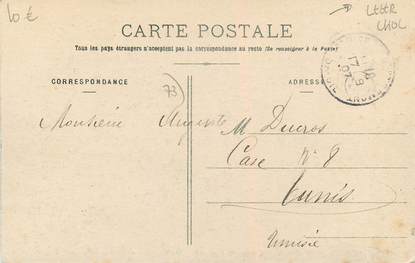 10 €
CARTE POSTALE
Tous les pays étrangers n'acceptent pas la correspondance au recto (Se renseigner à la Poste)
CORRESPONDANCE
ADRESSE
73
Monsieur Auguste M Ducros
Case N° 8
Tunis
Tunisie